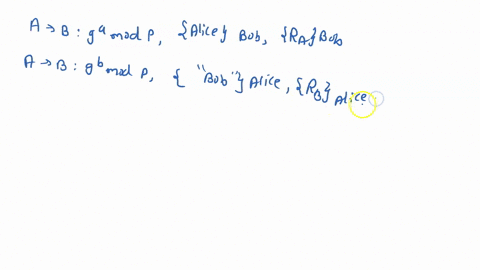 A → B : g^a mod P, {Alice} Bob, {R_A} Bob
A → B : g^b mod P, { "Bob"} Alice, {R_B} Alice